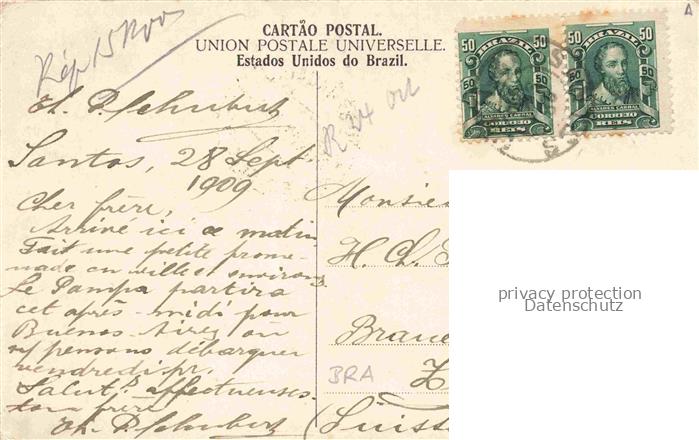 CARTÃO POSTAL.
UNION POSTALE UNIVERSELLE.
Estados Unidos do Brazil.
A
50 BRAZIL 50
50 50
ALVARES CABRAL
CORREIO
REIS
50 BRAZIL 50
50 50
ALVARES CABRAL
CORREIO
REIS
Rép 15 Nov
R 24 Oct
Th. D. Schubert
Santos, 28 Sept.
1909
Cher frère,
Arrivé ici ce matin
Fait une petite prome-
nade en ville & environs
Le Pampa partira
cet après-midi pour
Buenos-Aires où
ns/ pensons débarquer
vendredi pr.
Salut affectueuses
ton frère
Th. D. Schubert
Monsieur
H. Ch.
BRA
(Suisse
privacy protection
Datenschutz